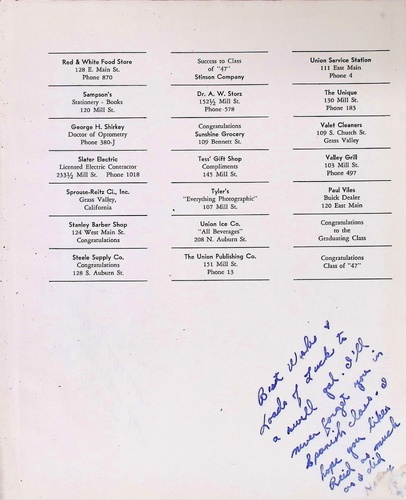 Red & White Food Store
128 E. Main St.
Phone 870
Sampson's
Stationery - Books
120 Mill St.
George H. Shirkey
Doctor of Optometry
Phone 380-J
Slater Electric
Licensed Electric Contractor
233½ Mill St. Phone 1018
Sprouse-Reitz Ci., Inc.
Grass Valley,
California
Stanley Barber Shop
124 West Main St.
Congratulations
Steele Supply Co.
Congratulations
128 S. Auburn St.
Success to Class
of "47"
Stinson Company
Dr. A. W. Storz
152½ Mill St.
Phone 578
Congratulations
Sunshine Grocery
109 Bennett St.
Tess' Gift Shop
Compliments
145 Mill St.
Tyler's
"Everything Photographic"
107 Mill St.
Union Ice Co.
"All Beverages"
208 N. Auburn St.
The Union Publishing Co.
151 Mill St.
Phone 13
Union Service Station
111 East Main
Phone 4
The Unique
130 Mill St.
Phone 183
Valet Cleaners
109 S. Church St.
Grass Valley
Valley Grill
103 Mill St.
Phone 497
Paul Viles
Buick Dealer
120 East Main
Congratulations
to the
Graduating Class
Congratulations
Class of "47"
Best Wishes &
Loads of Luck to
a swell gal. I'll
never forget you in
Spanish class. I
hope you likes
Reid as much
as I did